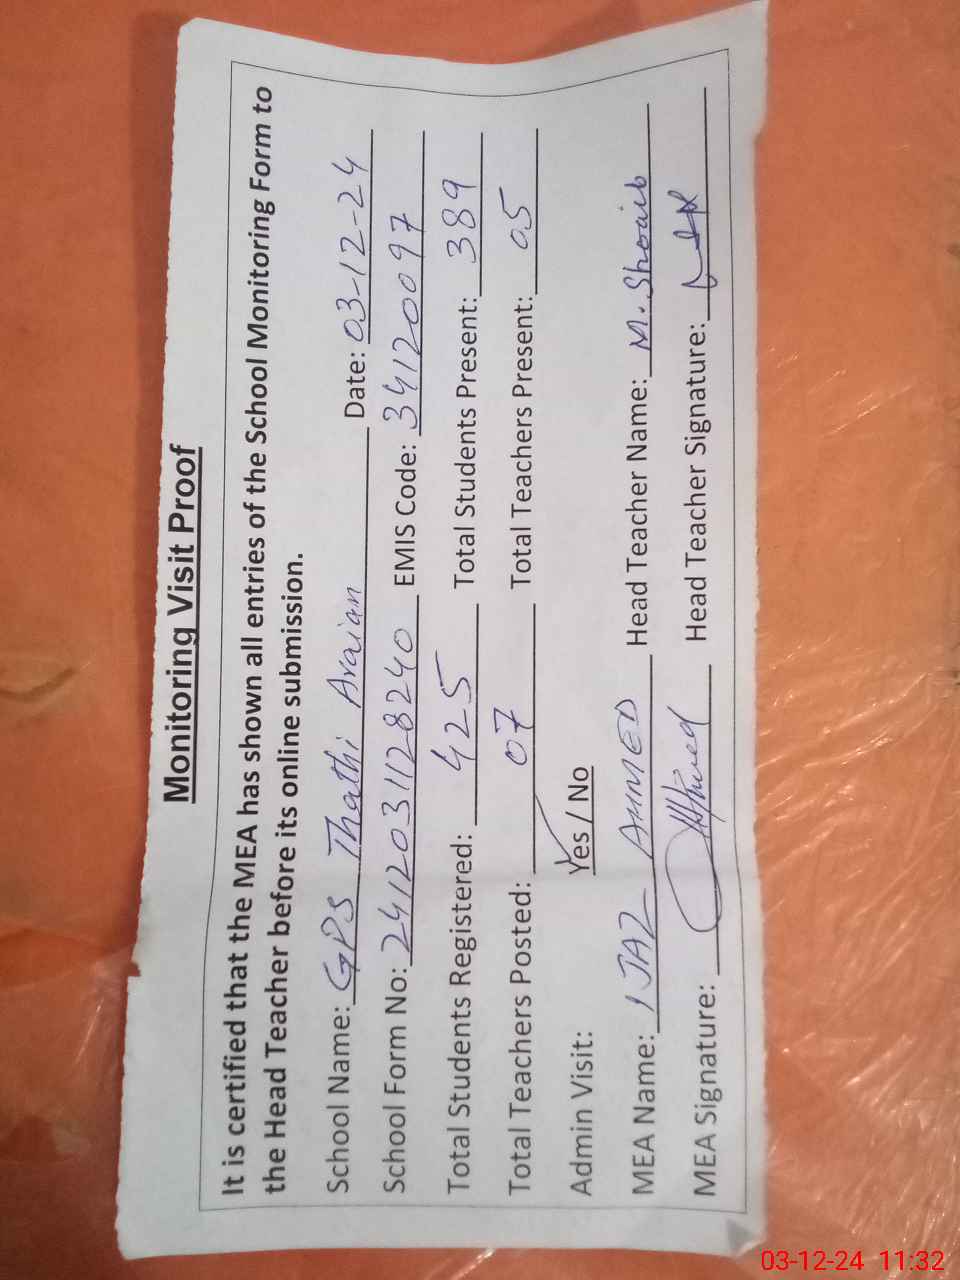 Monitoring Visit Proof
It is certified that the MEA has shown all entries of the School Monitoring Form to
the Head Teacher before its online submission.
School Name: GPS Thathi Araian Date: 03-12-24
School Form No: 2412031128240 EMIS Code: 34120097
Total Students Registered: 425 Total Students Present: 389
Total Teachers Posted: 07 Total Teachers Present: 05
Admin Visit: Yes / No
MEA Name: IJAZ AHMED Head Teacher Name: M. Shoaib
MEA Signature: Head Teacher Signature:
03-12-24 11:32